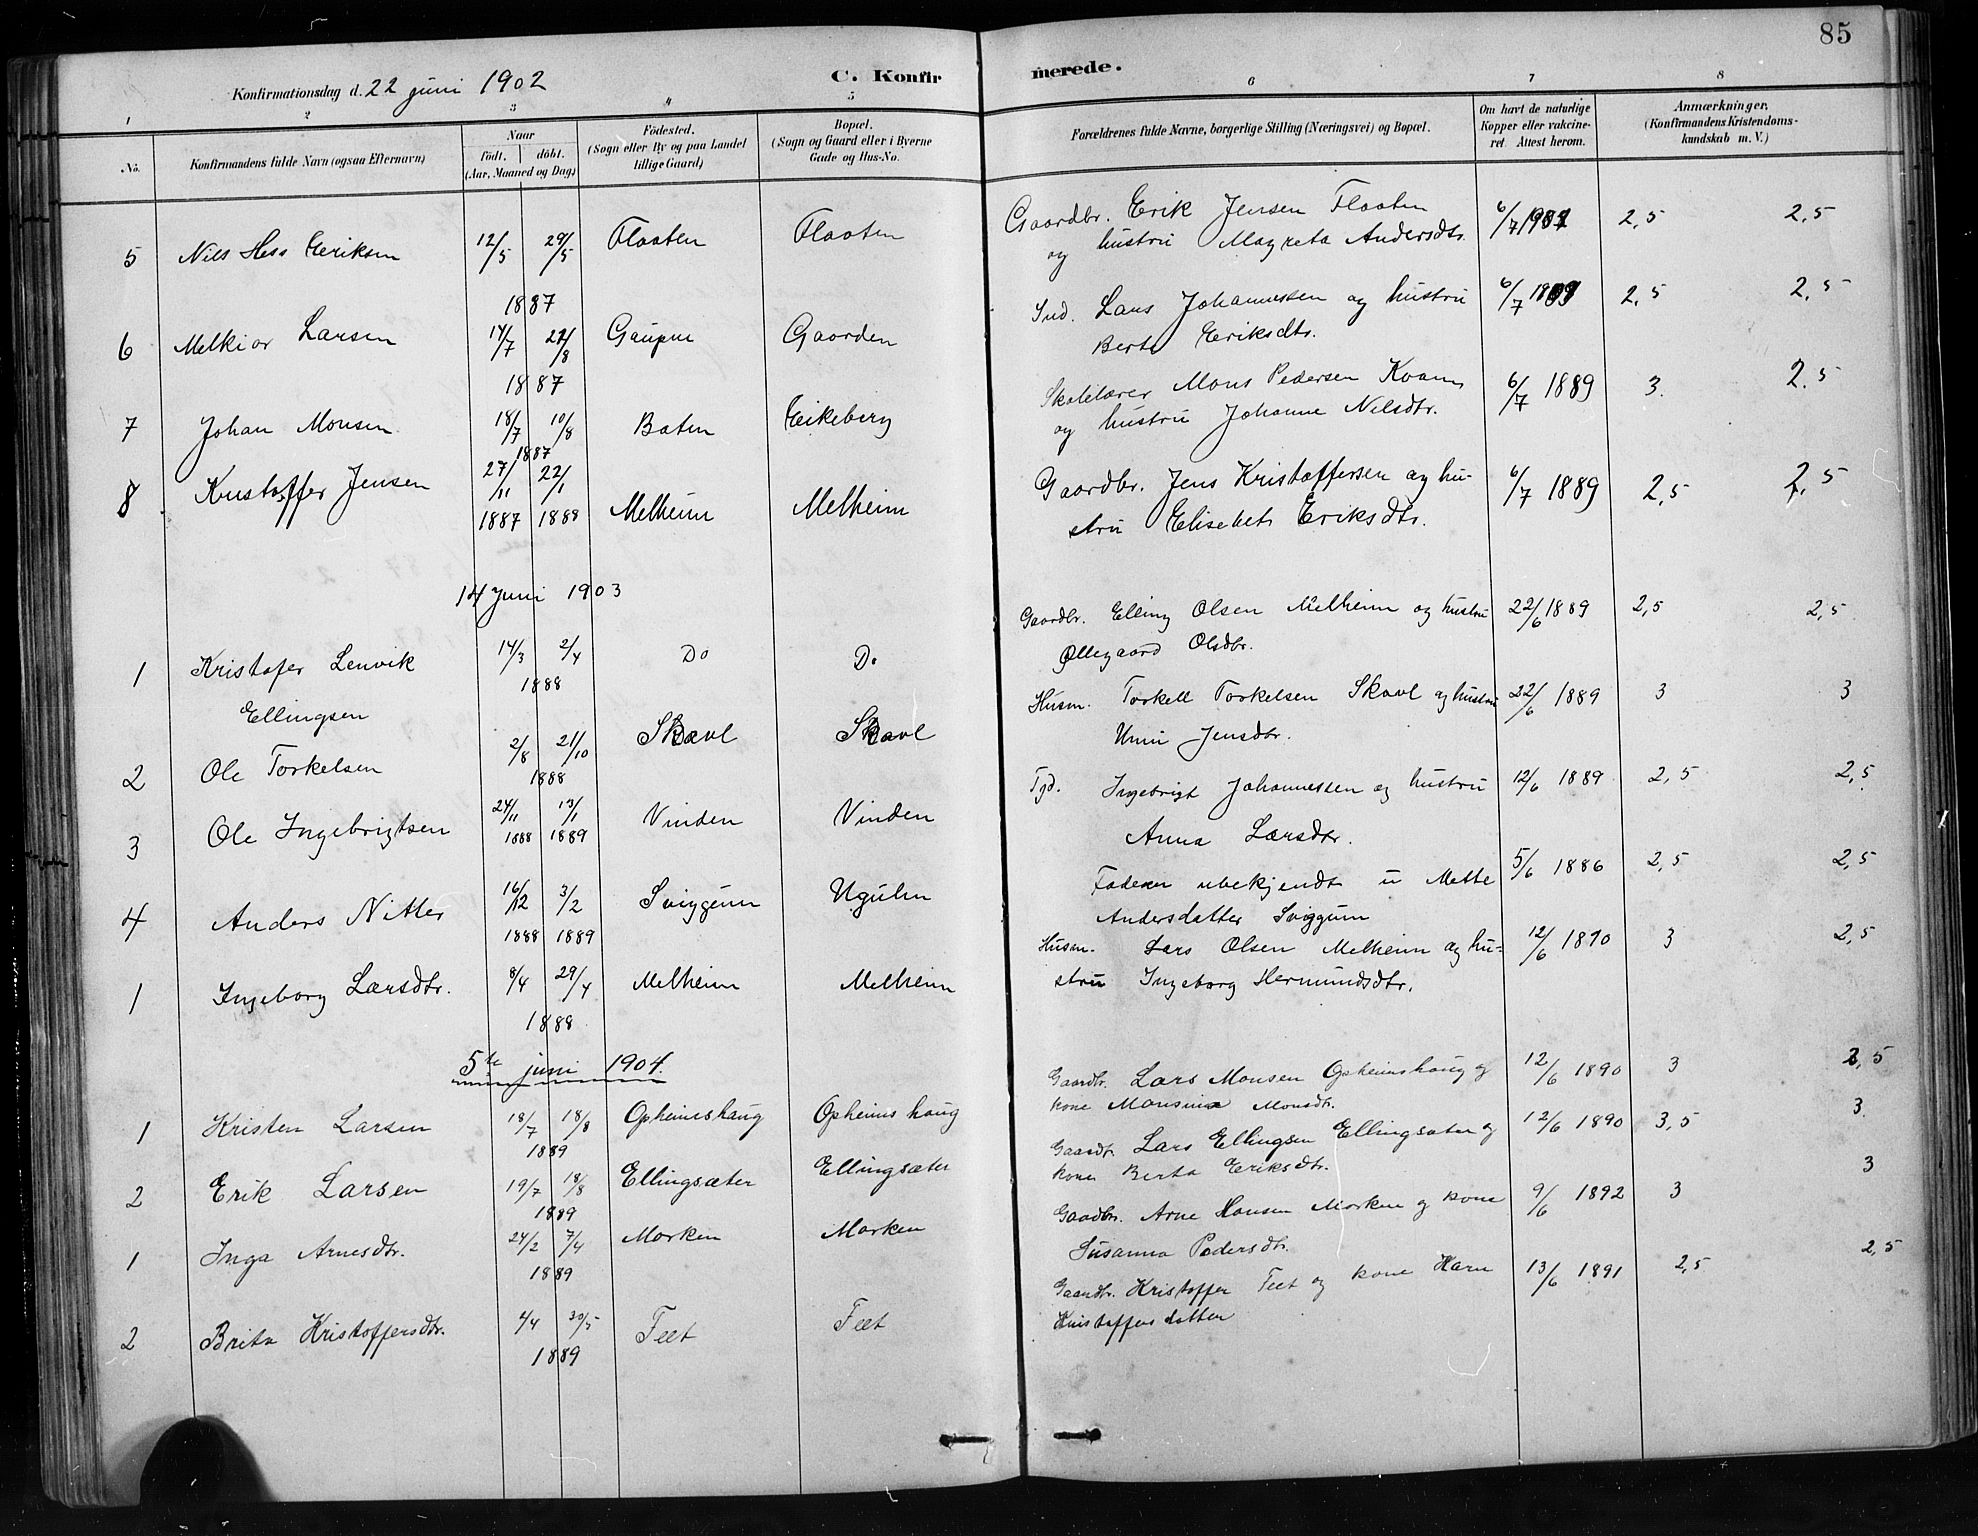 85
Konfirmationsdag d. 22 juni 1902
C. Konfirmerede.
1 2 3 4 5 6 7 8
No.
Konfirmandens fulde Navn (ogsaa Efternavn)
Naar
født. | døbt.
(Aar, Maaned og Dag)
Fødested.
(Sogn eller By og paa Landet
tillige Gaard)
Bopæl.
(Sogn og Gaard eller i Byerne
Gade og Hus-No.
Forældrenes fulde Navne, borgerlige Stilling (Næringsvei) og Bopæl.
Om havt de naturlige
Kopper eller vakcine-
ret. Attest herom.
Anmærkninger.
(Konfirmandens Kristendoms-
kundskab m. V.)
5 Nils Hess Eriksen 12/5 29/5 1887 Flaaten Flaaten Gaardbr. Erik Jensen Flaaten
og hustru Magreta Andersdtr. 6/7 2,5 2,5
6 Melkior Larsen 14/7 1887 Gaupne Gaarden Ind. Lars Johannessen og hustru
Berte Eriksdtr. 6/7 2,5 2,5
7 Johan Monsen 18/7 10/8 1887 Baten Eikeberg Skolelærer Mons Pedersen Kvam
og hustru Johanne Nilsdtr. 6/7 1889 3. 2.5
8 Kristoffer Jensen 27/11 1887 22/1 1888 Melheim Melheim Gaardbr. Jens Kristoffersen og hu-
stru Elisebet Eriksdtr. 6/7 1889 2,5 2,5
14 juni 1903
1 Kristofer Lenvik
Ellingsen 14/3 2/4 1888 Do Do Gaardbr. Elling Olsen Melheim og hustru
Øllegaard Olsdtr. 22/6 1889 2,5 2,5
2 Ole Torkelsen 2/8 21/10 1888 Skavl Skavl Husm. Torkell Torkelsen Skavl og hustru
Unni Jensdtr. 22/6 1889 3 3
3 Ole Ingebrigtsen 24/11 1888 13/1 1889 Vinden Vinden Ingebrigt Johannessen og hustru
Anna Larsdtr. 12/6 1889 2,5 2,5
4 Anders Nitter 16/12 1888 3/2 1889 Sviggum Ugulen Faderen ubekjendt u Mette
Andersdatter Sviggum 5/6 1886 2,5 2,5
1 Ingeborg Larsdtr. 8/4 29/4 1888 Melheim Melheim Husm. Lars Olsen Melheim og hu-
stru Ingeborg Hermundsdtr. 12/6 1890 3 2,5
5te juni 1904.
1 Kristen Larsen 18/7 18/8 1889 Opheimshaug Opheimshaug Gaardbr. Lars Monsen Opheimshaug og
kone Monsine Monsdtr. 12/6 1890 3 2,5
2 Erik Larsen 19/7 18/8 1889 Ellingsæter Ellingsæter Gaardbr. Lars Ellingsen Ellingsæter og
kone Berta Eriksdtr. 12/6 1890 3,5 3
1 Inga Arnesdtr. 24/2 7/4 1889 Morken Morken Gaardbr. Arne Hansen Morken og kone
Susanna Pedersdtr. 9/6 1892 3 3
2 Brita Kristoffersdtr. 4/4 30/5 1889 Feet Feet Gaardbr. Kristoffer Feet og kone Karn
Kristoffersdatter 13/6 1891 2,5 2,5